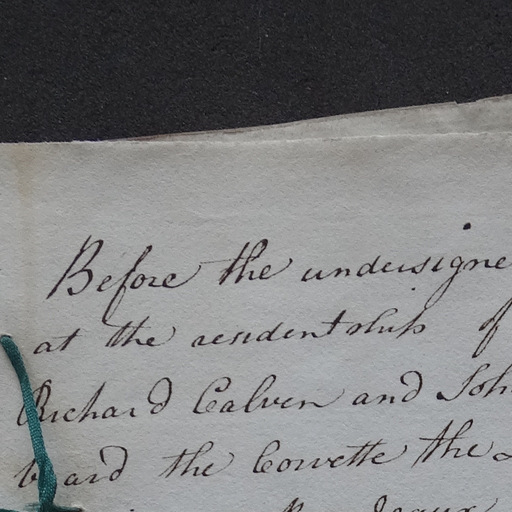 Before the undersigne
at the residentship of
Richard Calven and Joh
board the Corvette the